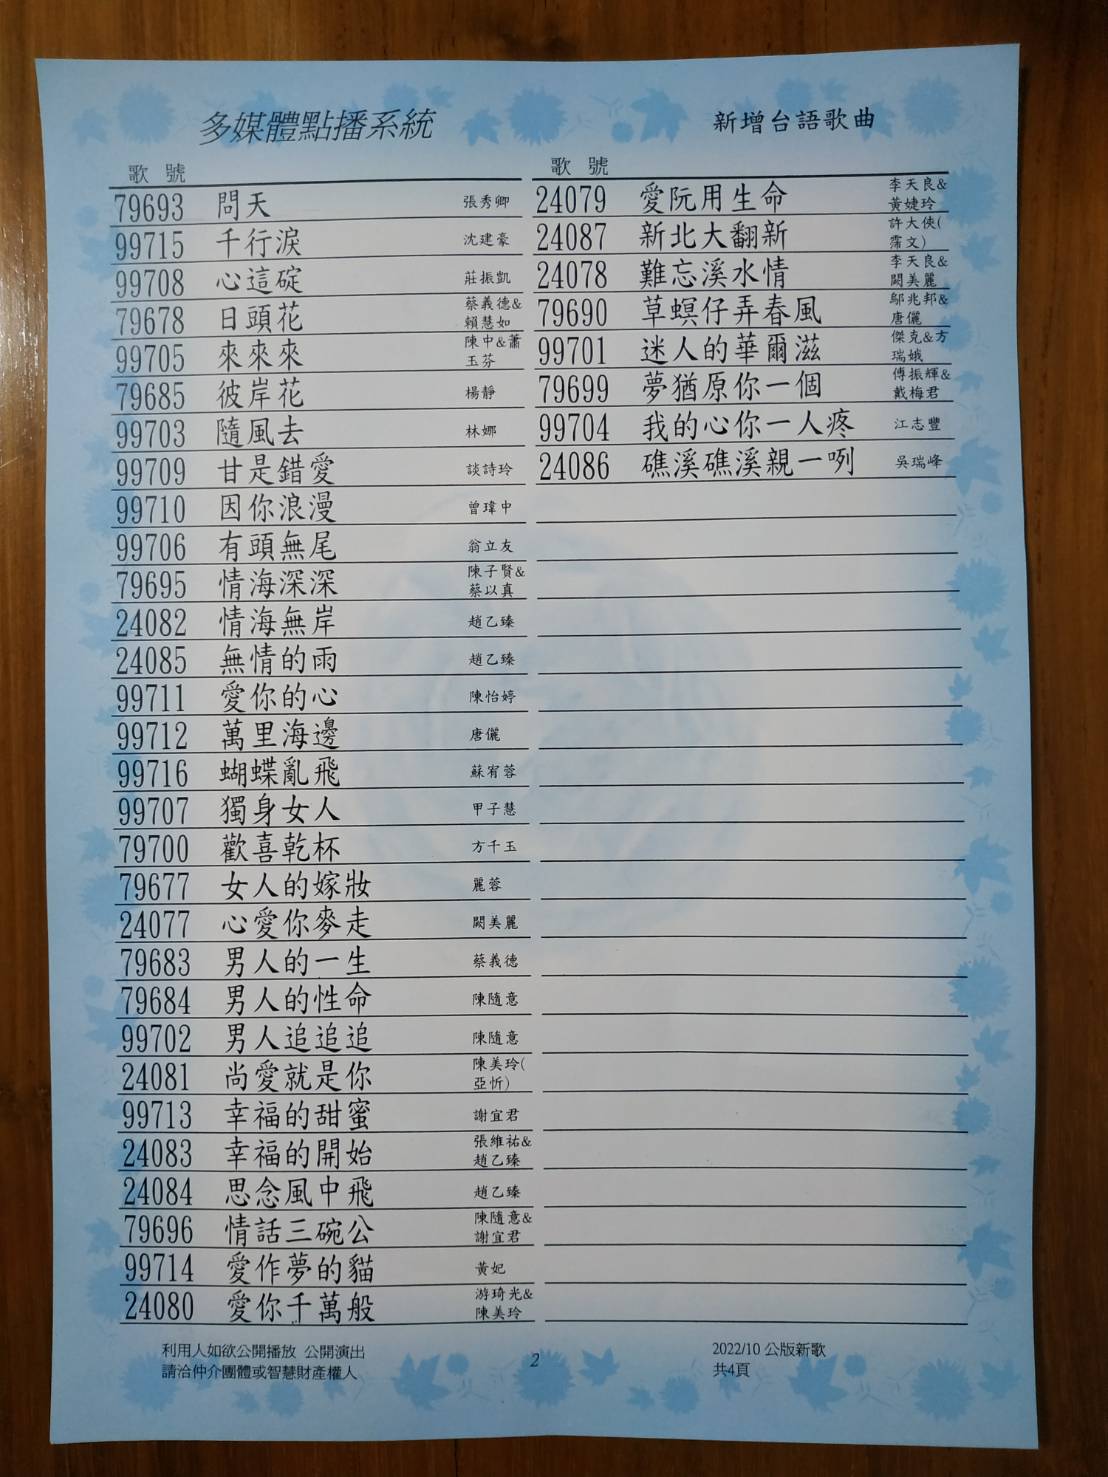 多媒體點播系統
新增台語歌曲
歌 號
79693 問天 張秀卿
99715 千行淚 沈建豪
99708 心這碇 莊振凱
79678 日頭花 蔡義德&賴慧如
99705 來來來 陳中&蕭玉芬
79685 彼岸花 楊靜
99703 隨風去 林娜
99709 甘是錯愛 談詩玲
99710 因你浪漫 曾瑋中
99706 有頭無尾 翁立友
79695 情海深深 陳子賢&蔡以真
24082 情海無岸 趙乙臻
24085 無情的雨 趙乙臻
99711 愛你的心 陳怡婷
99712 萬里海邊 唐儷
99716 蝴蝶亂飛 蘇宥蓉
99707 獨身女人 甲子慧
79700 歡喜乾杯 方千玉
79677 女人的嫁妝 麗蓉
24077 心愛你麥走 闕美麗
79683 男人的一生 蔡義德
79684 男人的性命 陳隨意
99702 男人追追追 陳隨意
24081 尚愛就是你 陳美玲(亞忻)
99713 幸福的甜蜜 謝宜君
24083 幸福的開始 張維祐&趙乙臻
24084 思念風中飛 趙乙臻
79696 情話三碗公 陳隨意&謝宜君
99714 愛作夢的貓 黃妃
24080 愛你千萬般 游琦光&陳美玲
歌 號
24079 愛阮用生命 李天良&黃婕玲
24087 新北大翻新 許大俠(霈文)
24078 難忘溪水情 李天良&闕美麗
79690 草螟仔弄春風 鄔兆邦&唐儷
99701 迷人的華爾滋 傑克&方瑞娥
79699 夢猶原你一個 傅振輝&戴梅君
99704 我的心你一人疼 江志豐
24086 礁溪礁溪親一咧 吳瑞峰
利用人如欲公開播放 公開演出
請洽仲介團體或智慧財產權人
2
2022/10 公版新歌
共4頁